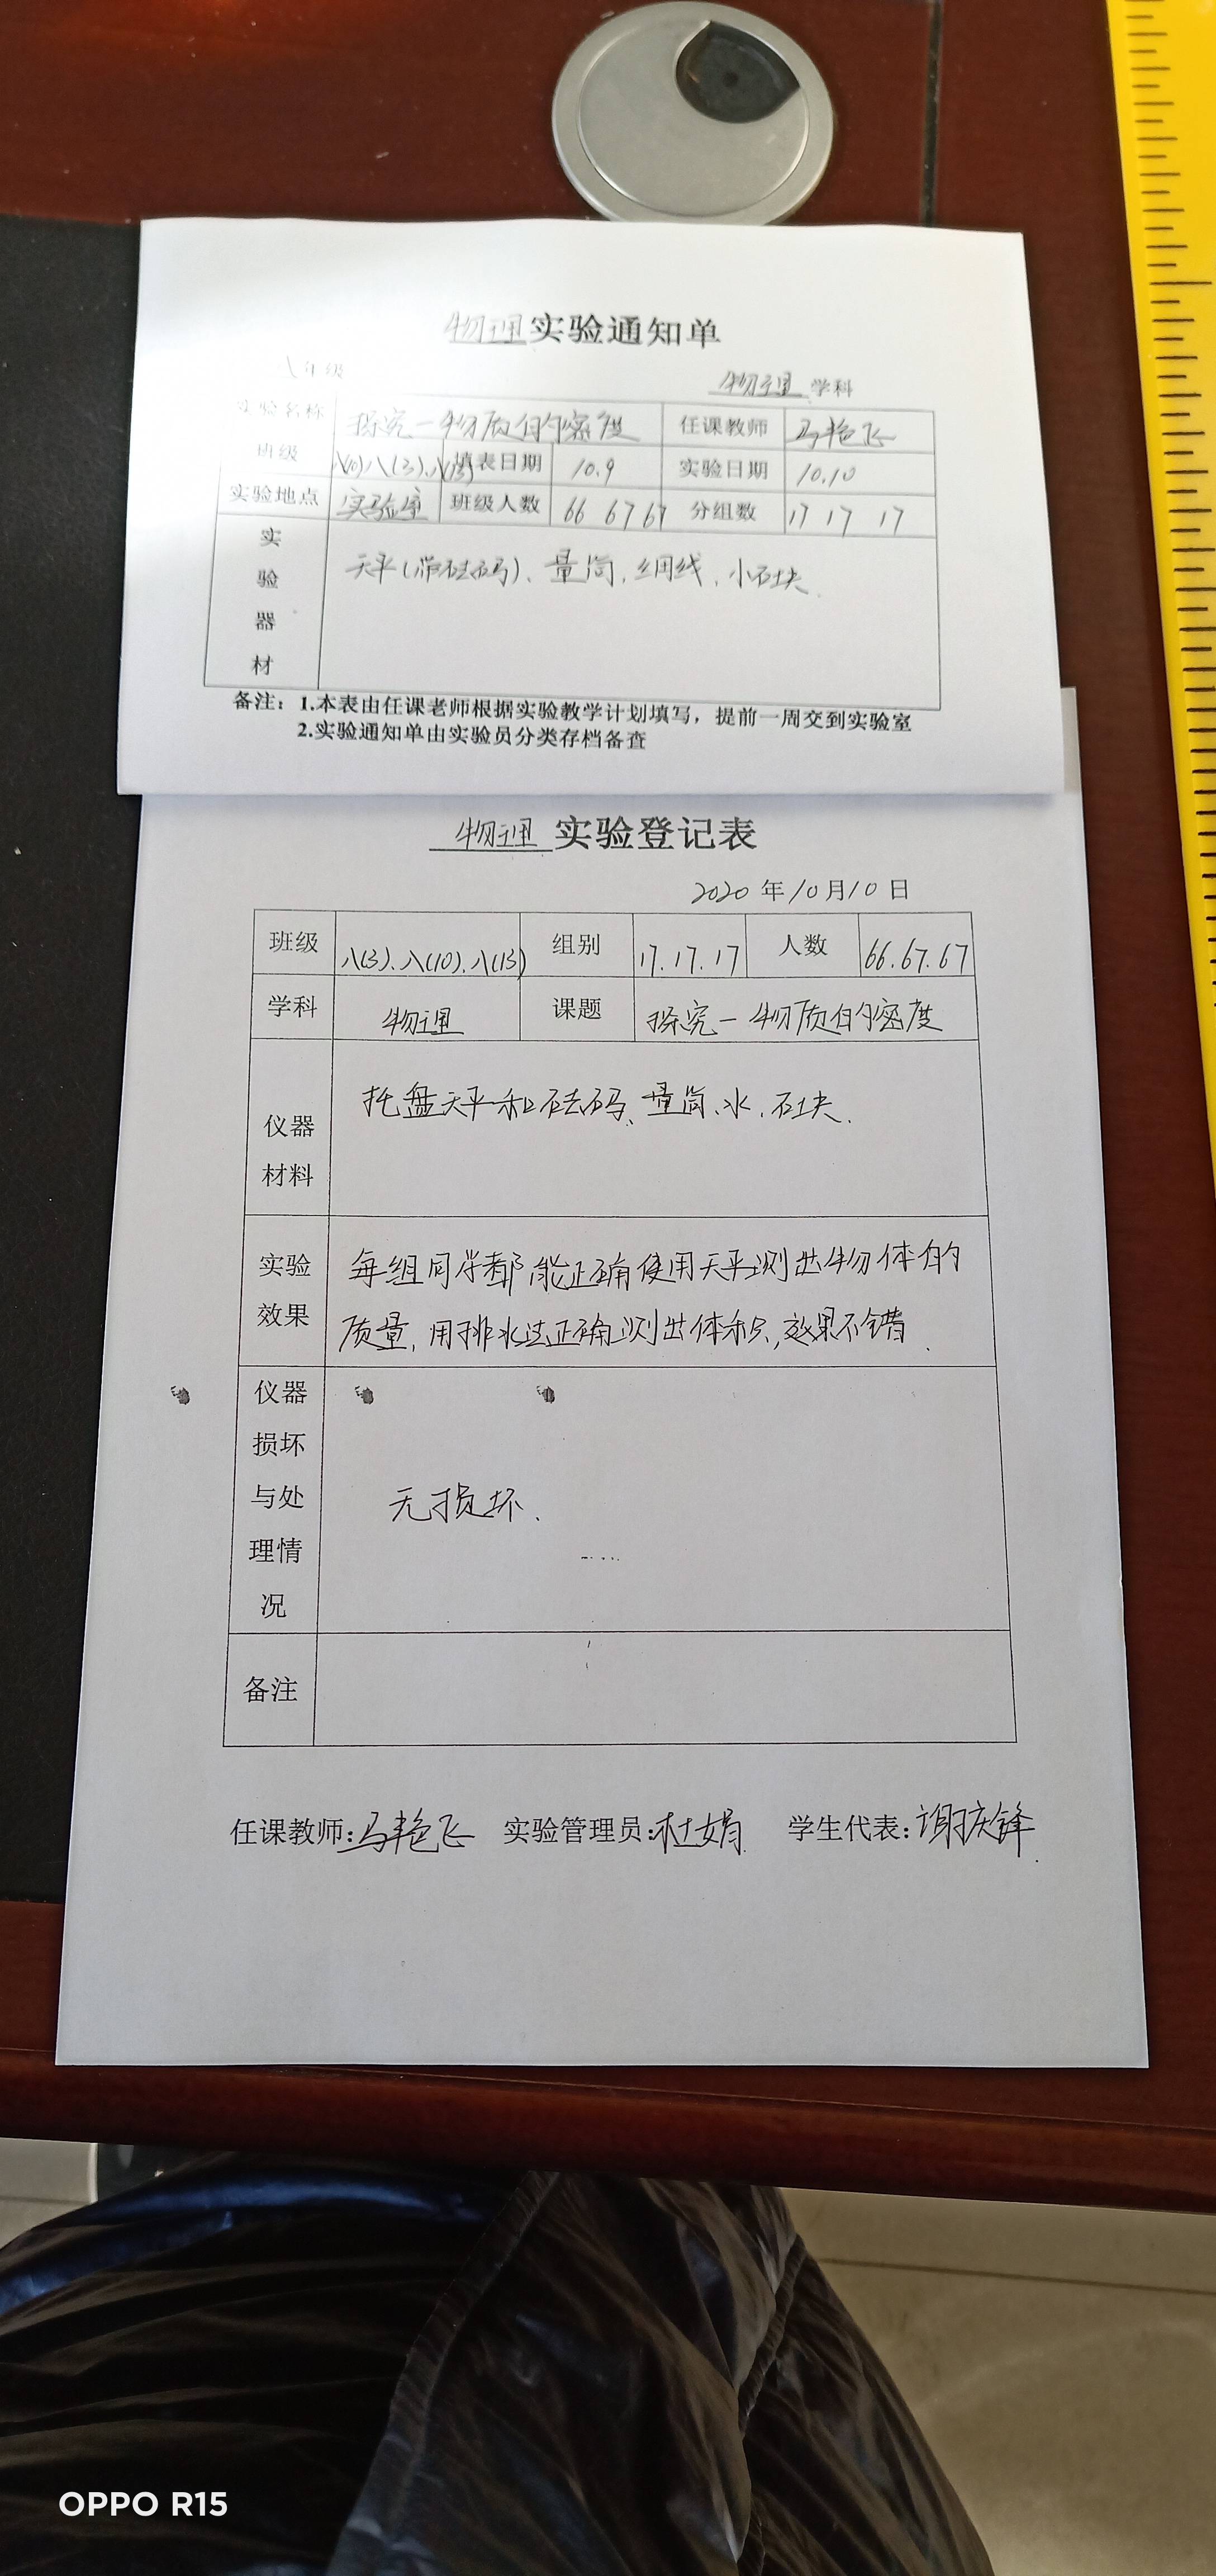 物理实验通知单
八年级
物理 学科
实验名称 探究一物质的密度 任课教师 马艳飞
班级 八(10)八(3).八(13) 填表日期 10.9 实验日期 10.10
实验地点 实验室 班级人数 66 67 67 分组数 17 17 17
实验器材 天平(带砝码)、量筒.细线.小石块.
备注：1.本表由任课老师根据实验教学计划填写，提前一周交到实验室
2.实验通知单由实验员分类存档备查
物理 实验登记表
2020 年 10 月 10 日
班级 八(3).八(10).八(13) 组别 17.17.17 人数 66.67.67
学科 物理 课题 探究一物质的密度
仪器材料 托盘天平和砝码、量筒、水.石块.
实验效果 每组同学都能正确使用天平测出物体的
质量,用排水法正确测出体积,效果不错.
仪器损坏与处理情况 无损坏.
备注
任课教师:马艳飞 实验管理员:杜娟 学生代表:谢庆锋
OPPO R15